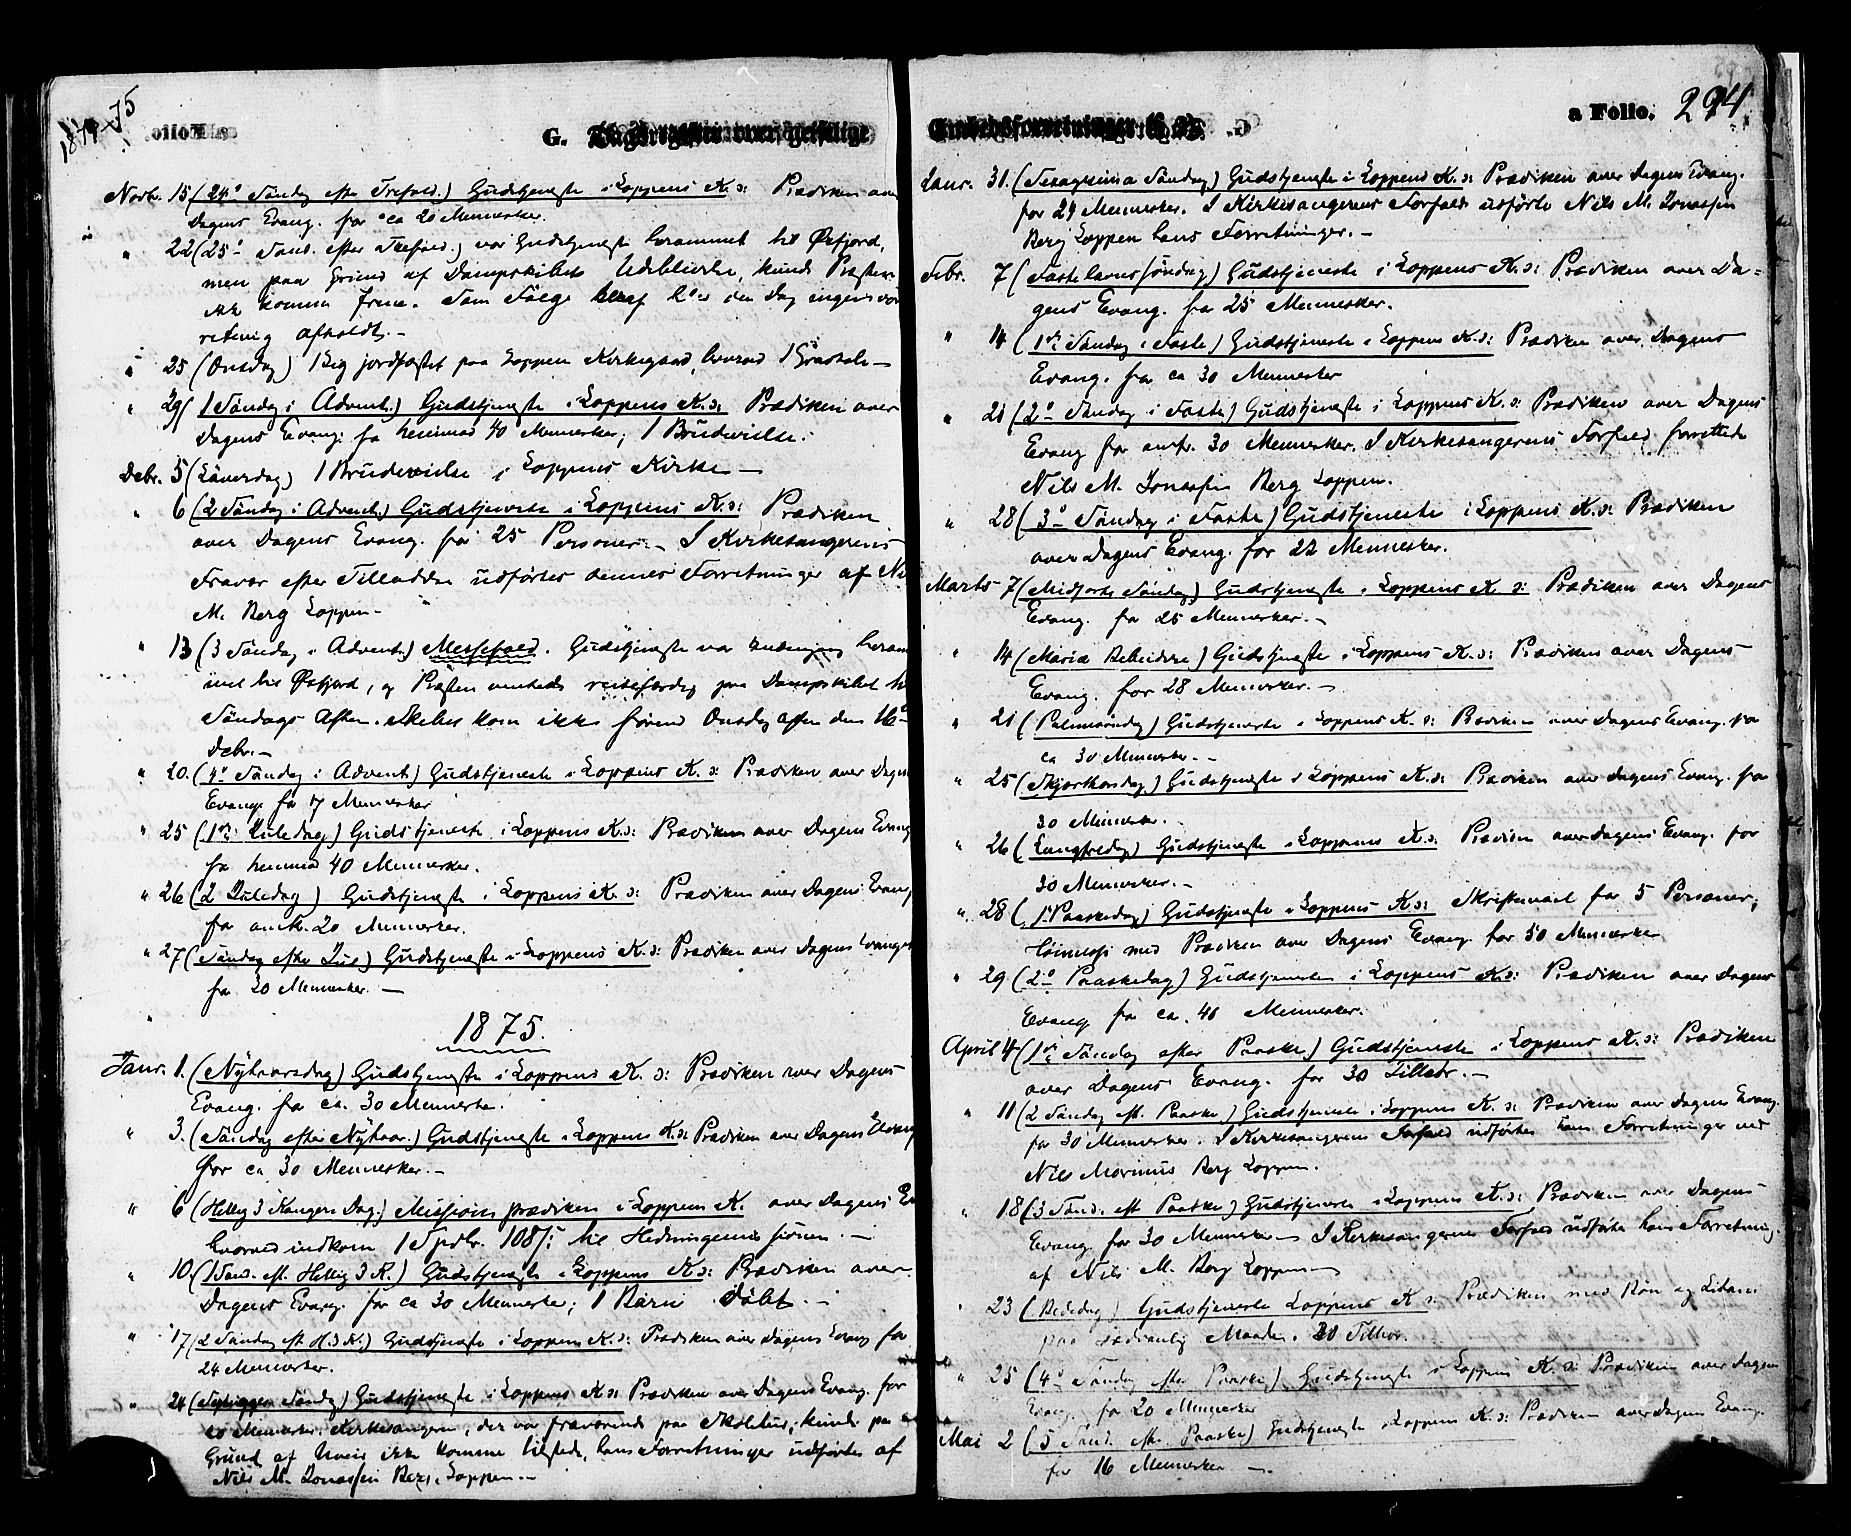 1874-75
G. Dagsregister over geistlige
Novbr. 15 (24de Søndag efter Trefold.) Gudstjeneste i Loppens K. ɔ: Prædiken over
Dagens Evang. for ca 20 Mennesker.
" 22 (25de Sønd. efter Trefold.) var Gudstjeneste berammet til Øxfjord,
men paa Grund af Dampskibets Udeblivelse, kunde Præsten
ikke komme frem. Som Følge heraf blev den Dag ingen For
retning afholdt.-
" 25 (Onsdag) 1 Lig jordfæstet paa Loppen Kirkegaard, hvorved 1 Gravtale -
" 29 (1 Søndag i Advent.) Gudstjeneste i Loppens K. ɔ: Prædiken over
Dagens Evang. for henimod 40 Mennesker; 1 Brudevielse.
Debr. 5 (Løverdag) 1 Brudevielse i Loppens Kirke -
" 6 (2 Søndag i Advent.) Gudstjeneste i Loppens K. ɔ: Prædiken
over Dagens Evang. for 25 Personer. - I Kirkesangerens
Fravær efter Tilladelse udførtes dennes Forretninger af Ni
M. Berg Loppen -
" 13 (3 Søndag i Advent.) Messefald. Gudstjeneste var beram
met til Øxfjord, og Præsten ventede reisefærdig paa Dampskibet
Søndags Aften. Skibet kom ikke førend Onsdag aften den 16de
Debr. -
" 20. (4de Søndag i Advent.) Gudstjeneste i Loppens K. ɔ: Prædiken over Dagens
Evang. for 17 Mennesker
" 25 (1ste Juledag) Gudstjeneste i Loppens K. ɔ: Prædiken over Dagens Evang
for henimod 40 Mennesker.
" 26 (2 Juledag) Gudstjeneste i Loppens K. ɔ: Prædiken over Dagens Evang.
for omtr. 20 Mennesker.
" 27 (Søndag efter Jul) Gudstjeneste i Loppens K. ɔ: Prædiken over Dagens Evang
for 20 Mennesker. -
1875.
Janr. 1. (Nytaarsdag) Gudstjeneste i Loppens K. ɔ: Prædiken over Dagens
Evang. for ca. 30 Mennesker.
" 3. (Søndag efter Nytaar.) Gudstjeneste i Loppens K. ɔ: Prædiken over Dagens Evang
for ca 30 Mennesker. -
" 6 (Hellig 3 Kongers Dag.) Missions prædiken i Loppens K. over Dagens Ev
hvorved indkom 1 Spdlr. 108 ß til Hedningemissionen. -
" 10. (1 Sønd. eft. Hellig 3 K.) Gudstjeneste i Loppens K. ɔ: Prædiken over
Dagens Evang. for ca 30 Mennesker; 1 Barn døbt. -
" 17 (2 Søndag eft H. 3 K.) Gudstjeneste i Loppens K. ɔ: Prædiken over Dagens Evang for
24 Mennesker.
" 24 (Septuagesima Søndag) Gudstjeneste i Loppens K. ɔ: Prædiken over Dagens Evang. for
20 Mennesker. Kirkesangeren, der var fraværende paa Skolehus, kunde paa
Grund af Uveir ikke komme tilstede, hans Forretninger udførtes af
Nils M. Jonassen Berg, Loppen. -
Embedsforretninger
a Folio. 294
Janr. 31. (Sexagesima Søndag) Gudstjeneste i Loppens K. ɔ: Prædiken over Dagens Evang.
for 29 Mennesker. I Kirkesangerens Forfald udførte Nils M. Jonassen
Berg Loppen hans Forretninger. -
Febr. 7 (Fastelavnssøndag) Gudstjeneste i Loppens K. ɔ: Prædiken over Da=
gens Evang. for 25 Mennesker.
" 14 (1ste Søndag i Faste) Gudstjeneste i Loppens K. ɔ: Prædiken over Dagens
Evang. for ca 30 Mennesker
" 21 (2den Søndag i Faste) Gudstjeneste i Loppens K. ɔ: Prædiken over Dagens
Evang for omtr. 30 Mennesker. I Kirkesangerens Forfald forrettede
Nils M. Jonassen Berg Loppen.
" 28 (3die Søndag i Faste) Gudstjeneste i Loppens K. ɔ: Prædiken
over Dagens Evang. for 22 Mennesker.
Marts 7 (Midfaste Søndag) Gudstjeneste i Loppens K. ɔ: Prædiken over Dagens
Evang. for 25 Mennesker. -
" 14 (Maria Bebudelse) Gudstjeneste i Loppens K. ɔ: Prædiken over Dagens
Evang. for 28 Mennesker. -
" 21 (Palmesøndag) Gudstjeneste i Loppens K. ɔ: Prædiken over Dagens Evang. for
ca 30 Mennesker. -
" 25 (Skjærthorsdag) Gudstjeneste i Loppens K. ɔ: Prædiken over Dagens Evang. for
30 Mennesker.
" 26 (Langfredag) Gudstjeneste i Loppens K. ɔ: Prædiken over Dagens Evang. for
30 Mennesker. -
" 28 (1ste Paaskedag) Gudstjeneste i Loppens K. ɔ: Skriftemaal for 5 Personer;
Høimesse med Prædiken over Dagens Evang. for 50 Mennesker
" 29 (2den Paaskedag) Gudstjeneste i Loppens K. ɔ: Prædiken over Dagens
Evang for ca. 46 Mennesker.
April 4 (1ste Søndag efter Paaske) Gudstjeneste i Loppens K. ɔ: Prædiken
over Dagens Evang. for 30 Tilhør. -
" 11 (2 Søndag eft. Paaske) Gudstjeneste i Loppens K. ɔ: Prædiken over Dagens Evang.
for 30 Mennesker. I Kirkesangerens Forfald udførtes hans Forretninger ved
Nils Marinius Berg Loppen.
" 18 (3 Sønd. eft Paaske) Gudstjeneste i Loppens K. ɔ: Prædiken over Dagens
Evang. for 30 Mennesker - I Kirkesangerens Forfald udførtes hans Forretning.
af Nils M. Berg Loppen -
" 23 (Bededag) Gudstjeneste Loppens K ɔ: Prædiken med Bøn og Litani
paa sædvanlig Maade. 20 Tilhør.
" 25 (4de Søndag efter Paaske) Gudstjeneste i Loppens K. ɔ: Prædiken over Dagens
Evang. for 20 Mennesker
Mai 2 (5 Sønd. efter Paaske) Gudstjeneste i Loppens K. ɔ: Prædiken over Dagens Evang.
for 16 Mennesker -